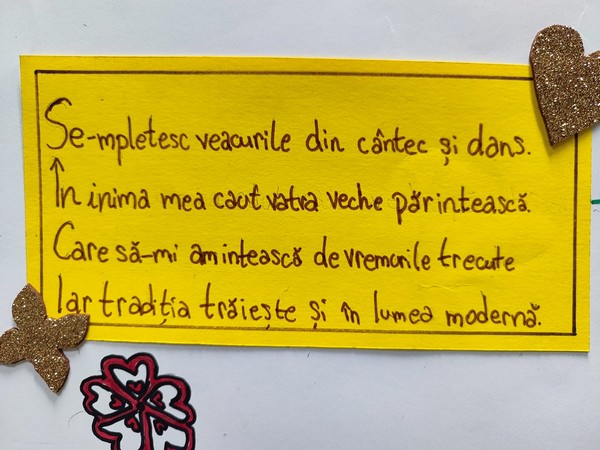 Se-mpletesc veacurile din cântec și dans.
În inima mea caut vatra veche părintească.
Care să-mi amintească de vremurile trecute
Iar tradiția trăiește și în lumea modernă.